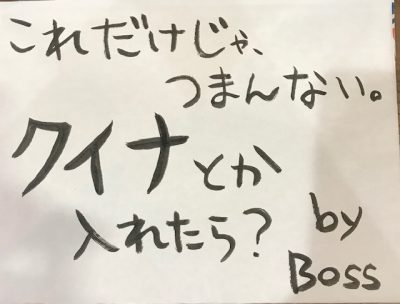 これだけじゃ、
つまんない。
クイナとか
入れたら?
by
Boss